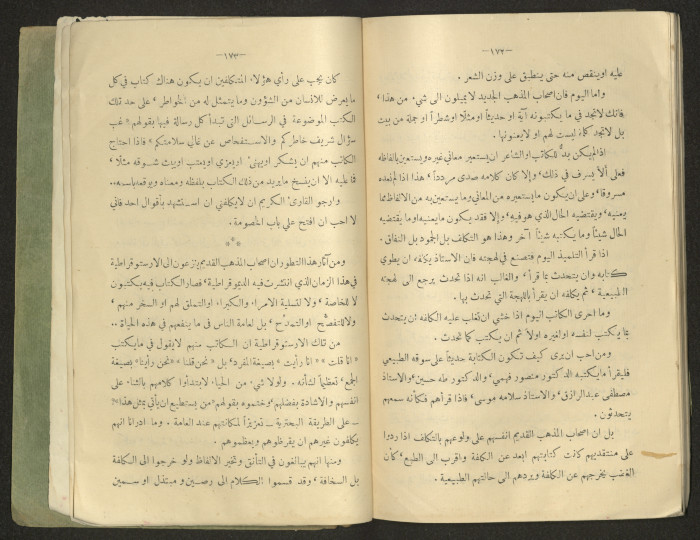 —١٧٢—
عليه او ينقص منه حتى ينطبق على وزن الشعر .
واما اليوم فان اصحاب المذهب الجديد لا يميلون الى شيء من هذا ،
فانك لا تجد في ما يكتبونه آية او حديثاً او مثلا او شطراً او جملة من بيت
بل لا تجد كلمة ليست لهم او لا يعنونها .
اذا لم يكن بدٌّ للكاتب او الشاعر ان يستعير معاني غيره ويستعين بالفاظه
فعلى ألا يسرف في ذلك ، والا كان كلامه صدى مردداً ، هذا اذا لم نعده
مسروقا ، وعلى ان يكون ما يستعيره من المعاني وما يستعين به من الالفاظ مما
يعنيه ، ويقتضيه الحال الذي هو فيه ، والا فقد يكون ما يعنيه او ما يقتضيه
الحال شيئاً وما يكتبه شيئاً آخر وهذا هو التكلف بل الجمود بل النفاق .
اذا قرأ التلميذ اليوم فتصنع في لهجته فان الاستاذ يكلفه ان يطوي
كتابه وان يتحدث بما قرأ ، والغالب انه اذا تحدث يرجع الى لهجته
الطبيعية ، ثم يكلفه ان يقرأ باللهجة التي تحدث بها .
وما احرى الكاتب اليوم اذا خشي ان تغلب عليه الكلفة ان يتحدث
بما يكتب لنفسه او لغيره اولاً ثم ان يكتب كما تحدث .
ومن احب ان يرى كيف تكون الكتابة حديثاً على سوقه الطبيعي
فليقرأ ما يكتبه الدكتور منصور فهمي ، والدكتور طه حسين ، والاستاذ
مصطفى عبد الرازق ، والاستاذ سلامه موسى ، فاذا قرأهم فكأنه سمعهم
يتحدثون .
بل ان اصحاب المذهب القديم انفسهم على ولوعهم بالتكلف اذا ردوا
على منتقديهم كانت كتابتهم ابعد عن الكلفة واقرب الى الطبع ، كأن
الغضب يخرجهم عن الكلفة ويردهم الى حالتهم الطبيعية .
—١٧٣—
كان يجب على رأي هؤلاء المتكلفين ان يكون هناك كتاب في كل
ما يعرض للانسان من الشؤون وما يتمثل له من الخواطر ، على حد تلك
الكتب الموضوعة في الرسائل التي تبدأ كل رسالة فيها بقولهم «غب
سؤال شريف خاطركم والاستفحاص عن غالي سلامتكم» فاذا احتاج
الكاتب منهم ان يشكر او يهنئ او يعزي او يعتب او يبث شوقه مثلا ،
فما عليه الا ان ينسخ ما يريد من ذلك الكتاب بلفظه ومعناه ويوقعه باسمه..
وارجو القارئ الكريم ان لا يكلفني ان استشهد بأقوال احد فاني
لا احب ان افتح علي باب الخصومة .
***
ومن آثار هذا التطور ان اصحاب المذهب القديم ينزعون الى الارستوقراطية
في هذا الزمان الذي انتشرت فيه الديموقراطية ، فصار الكتاب فيه يكتبون
لا للخاصة ، ولا لتسلية الامراء والكبراء او التملق لهم او السخر منهم ،
ولا للتفصح او التمدح ، بل لعامة الناس في ما ينفعهم في هذه الحياة ..
من تلك الارستوقراطية ان الكاتب منهم لا يقول في ما يكتب
«انا قلت» «انا رأيت» بصيغة المفرد ، بل «نحن قلنا» «نحن رأينا» بصيغة
الجمع ، تعظيماً لشأنه . ولولا شيء من الحياء لابتدأوا كلامهم بالثناء على
انفسهم والاشادة بفضلهم ، وختموه بقولهم «من يستطيع ان يأتي بمثل هذا؟!»
— على الطريقة البحترية — تعزيزاً لمكانتهم عند العامة . وما ادرانا انهم
يكلفون غيرهم ان يقرظوهم ويعظموهم .
ومنها انهم يبالغون في التأنق وتخير الالفاظ ولو خرجوا الى الكلفة
بل السخافة ، وقد قسموا الكلام الى رصين ومبتذل او سمين